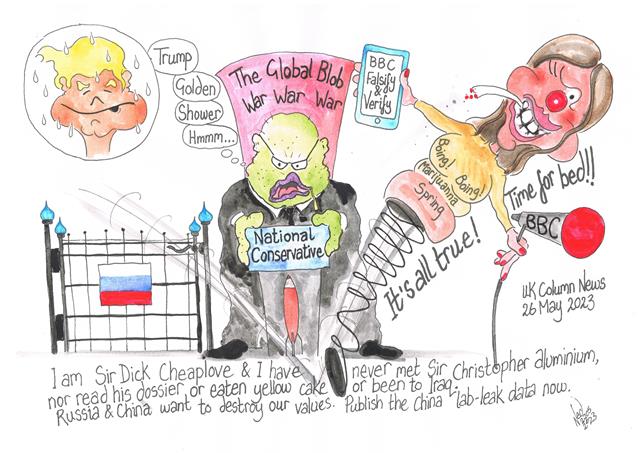 Trump
Golden
Shower
Hmmm...
The Global Blob
War War War
BBC
Falsify
&
Verify
National
Conservative
Boing! Boing!
Marijuanna
Spring
It's all true!
Time for bed!!
BBC
UK Column News
26 May 2023
I am Sir Dick Cheaplove & I have never met Sir Christopher aluminium,
nor read his dossier, or eaten yellow cake or been to Iraq.
Russia & China want to destroy our values. Publish the China lab-leak data now.
2023